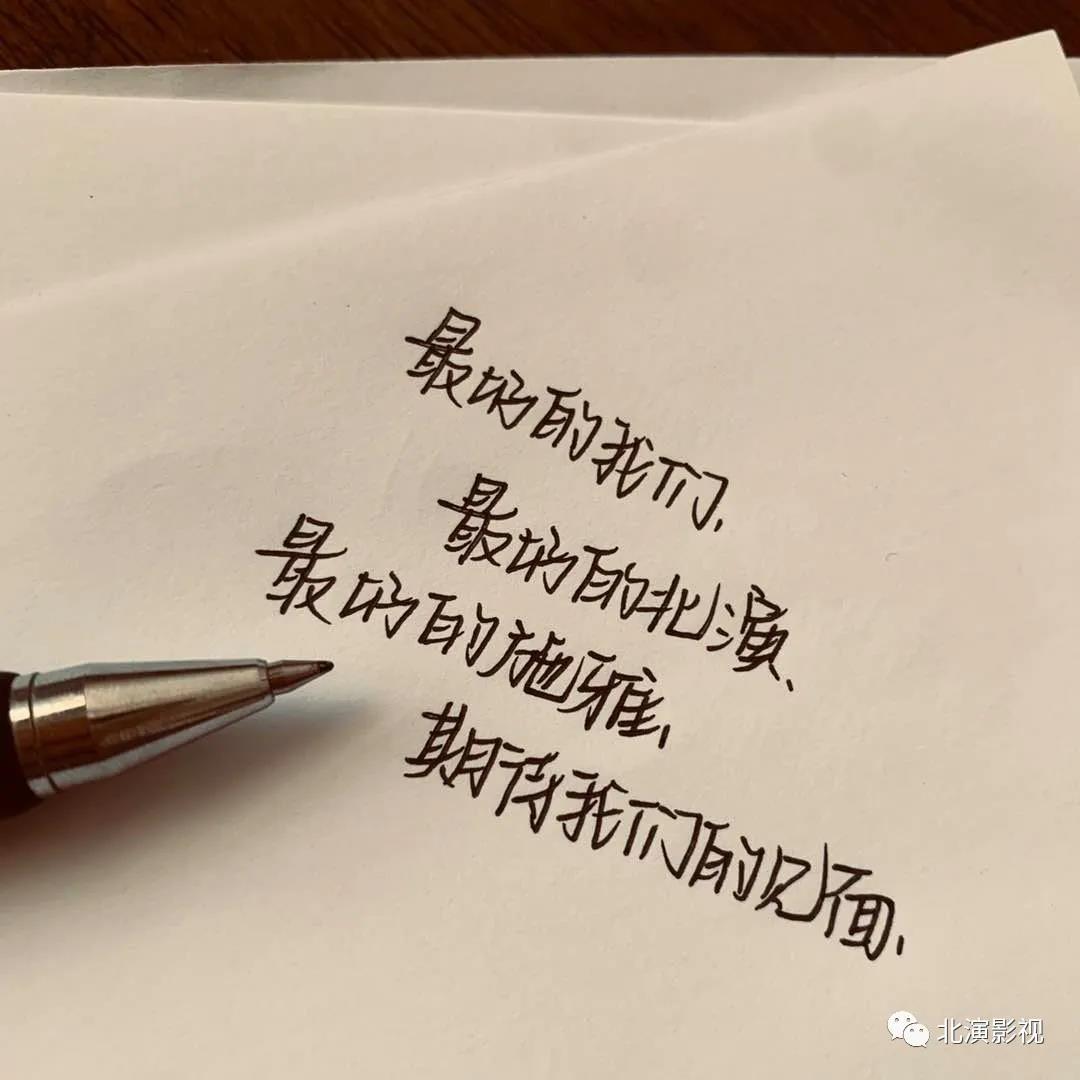 最好的我们、
最好的北演、
最好的施雅、
期待我们的见面、
北演影视